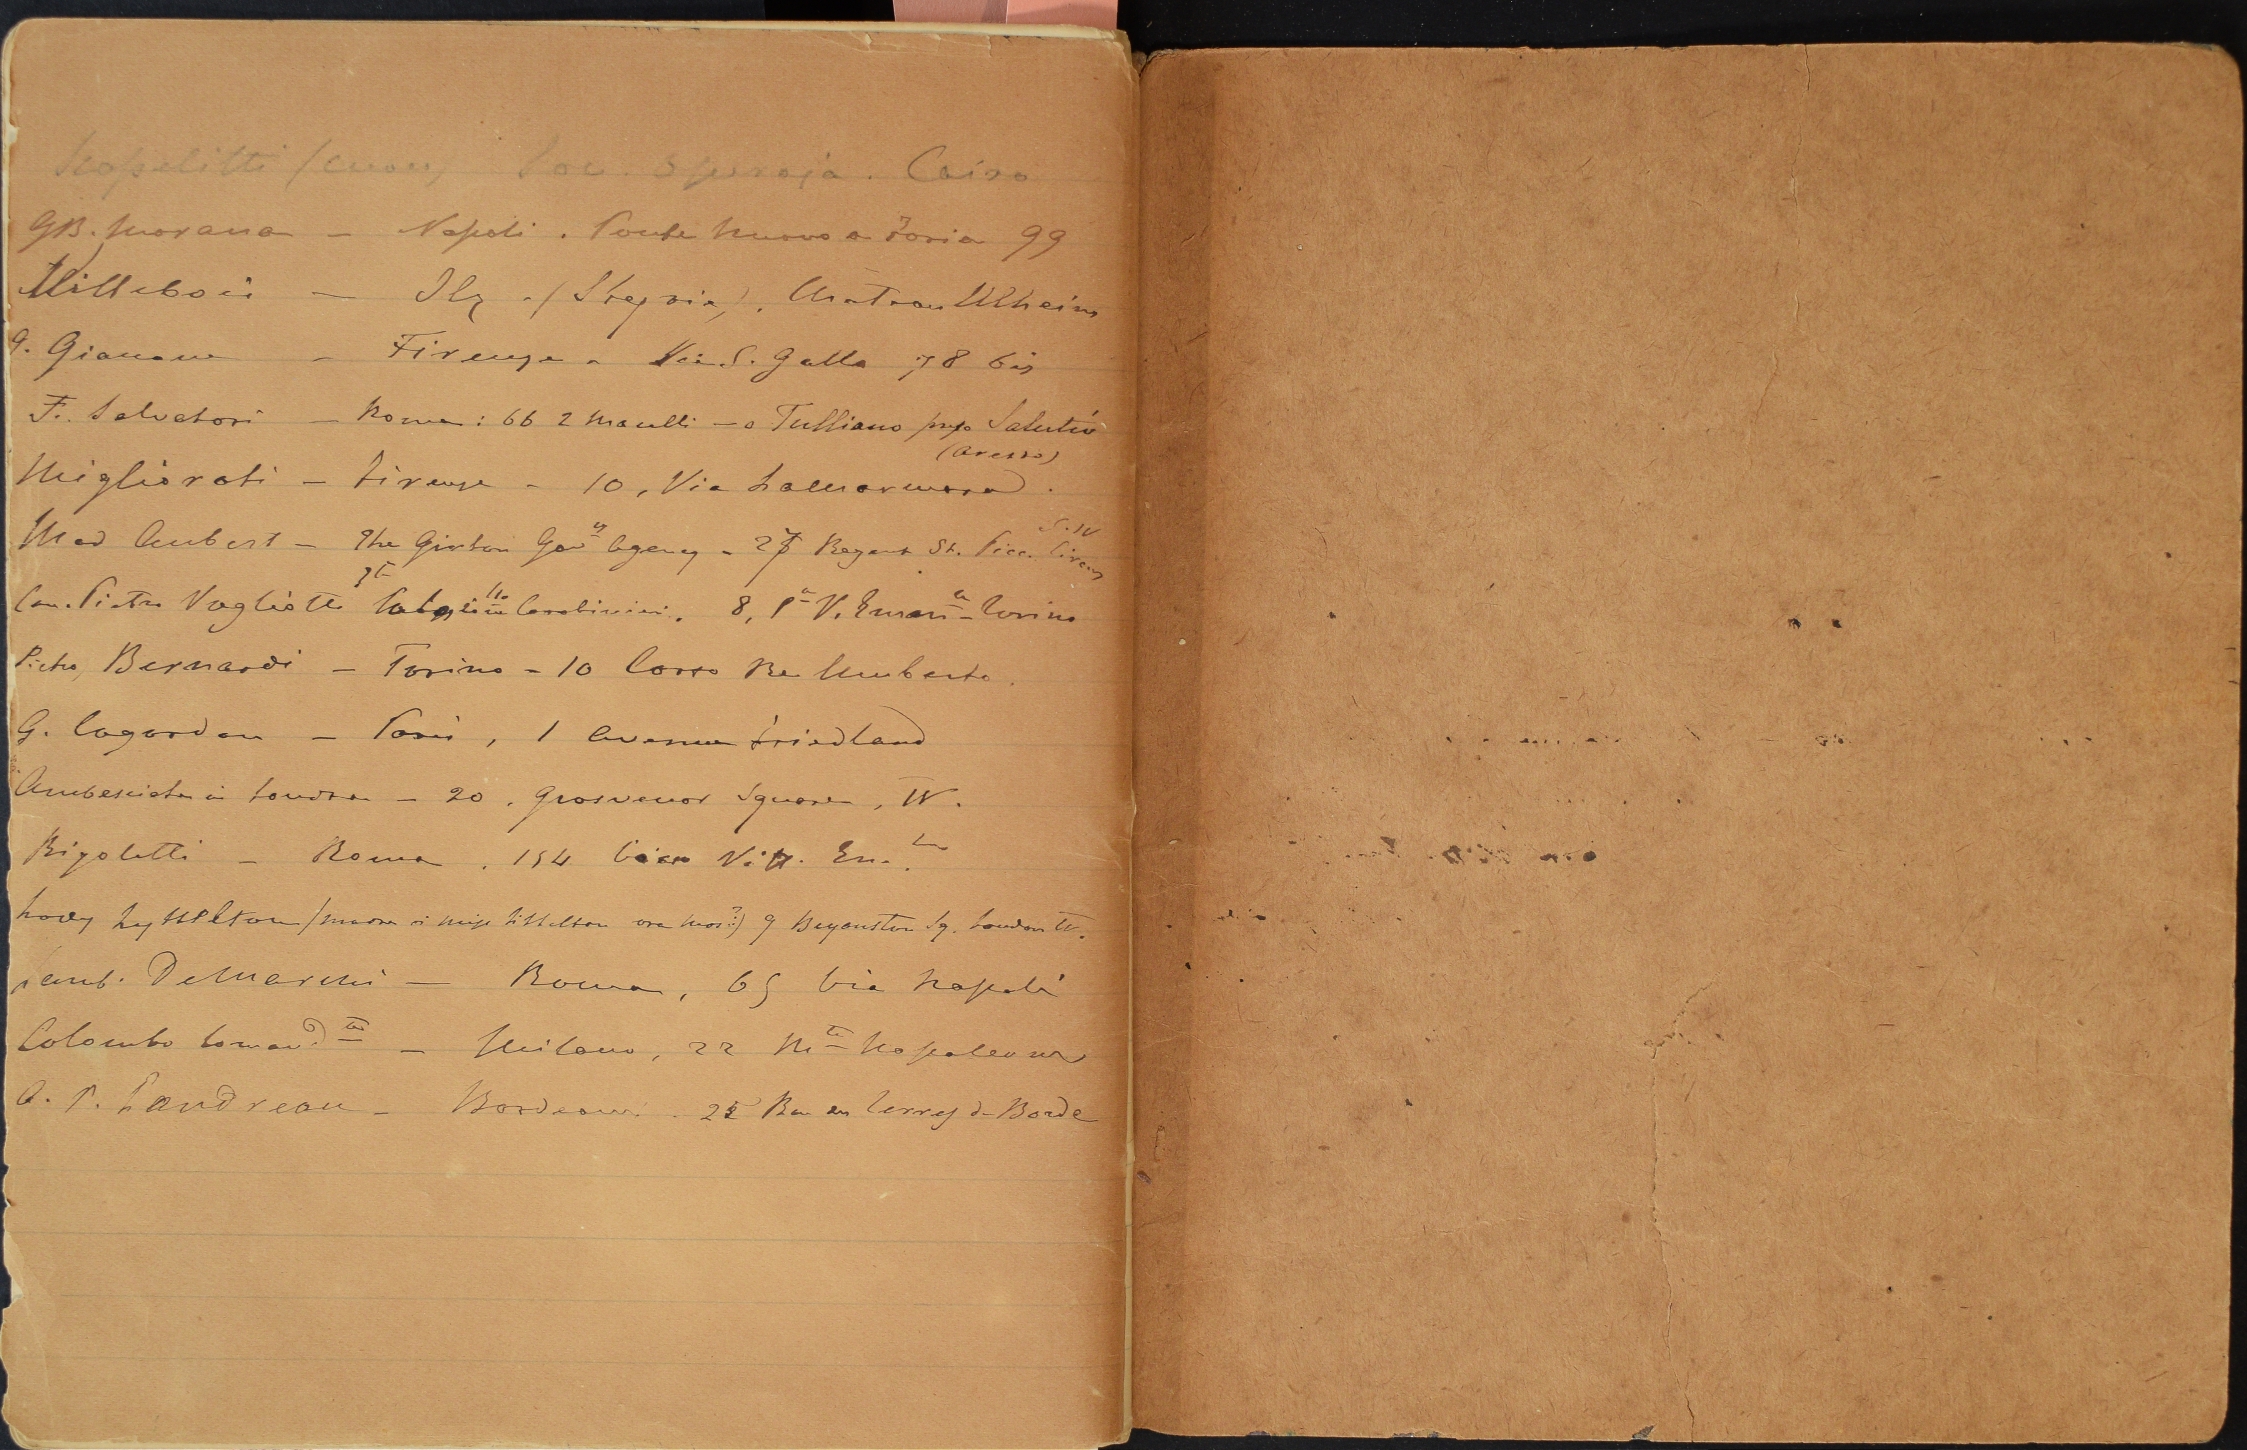 Napolitti (cuoco) Soc. Operaja. Cairo
GB. Morana - Napoli. Ponte Nuovo a Foria 99
Millebois - Ilz - (Stejria),
G. - Firenze - Via S. Gallo 78 bis
F. Salvatori - Roma: 66 2 Macelli - o Tulliano presso Salutio
(Arezzo)
Migliorati - Firenze - 10, Via Lamarmora.
S.W
Mad Aubert - The Girton Gov^s Agency - 27 Regent St. Picc. Circus
Cav. Pietro Vogliotti Carabinieri. 8, P^a V. Eman^e - Torino
Pietro Bernardi - Torino - 10 Corso Re Umberto.
G. Cogordan - Paris, 1 Avenue Friedland
Ambasciata in Londra - 20, Grosvenor Square, W.
Rigoletti - Roma. 154 Corso Vitt. Em.
Lady Lyttelton (madre di Miss Littelton ora) 9 Bryanston Sq. London W.
Lamb. DeMarchi - Roma, 65 Via Napoli
Colombo Comand^te - Milano, 22 M^te Napoleone
A. P. Landreau - Bordeaux. 25 Rue